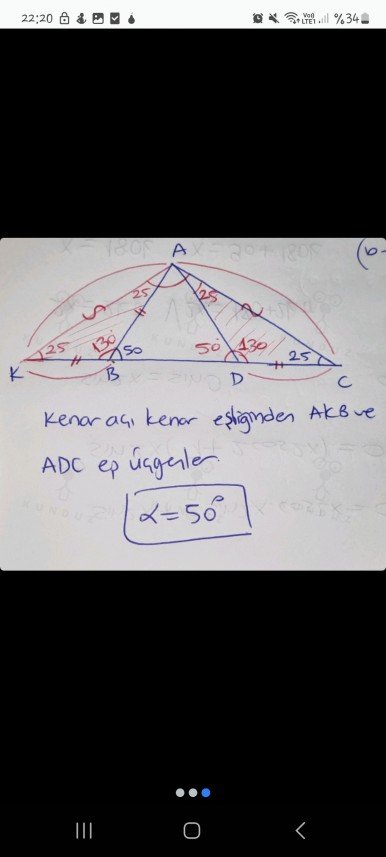 22:20
VoB
LTE1
%34
A
25
25
25
130
50
50
130
25
K
B
D
C
Kenar açı kenar eşliğinden AKB ve
ADC eş üçgenler.
α=50°